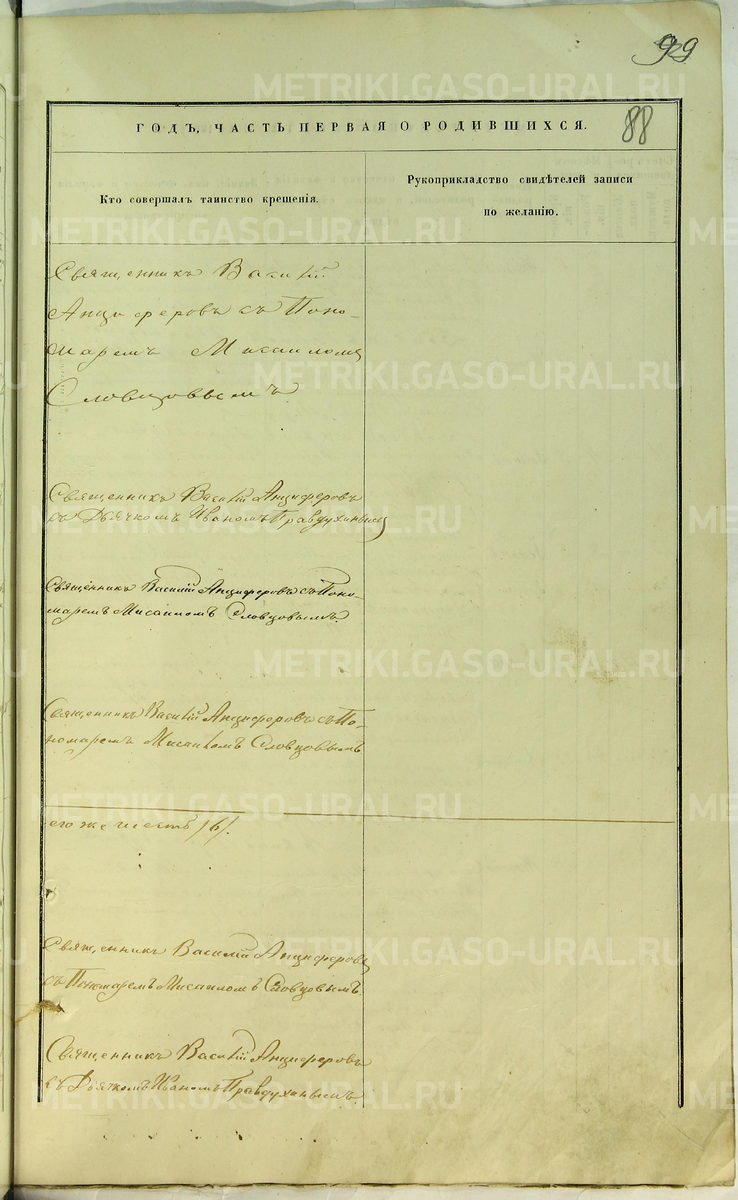 99
88
ГОДЪ, ЧАСТЬ ПЕРВАЯ О РОДИВШИХСЯ.
Кто совершалъ таинство крещенія.
Рукоприкладство свидѣтелей записи
по желанію.
Священникъ Василій
Анциферовъ съ Поно-
маремъ Мисаиломъ
Словцовымъ.
Священникъ Василій Анциферовъ
съ Дьячкомъ Иваномъ Правдухинымъ
Священникъ Василій Анциферовъ съ Поно-
маремъ Мисаиломъ Словцовымъ.
Священникъ Василій Анциферовъ съ По-
номаремъ Мисаиломъ Словцовымъ
шесть /6/.
Священникъ Василій Анциферовъ
съ Пономаремъ Мисаиломъ Словцовымъ.
Священникъ Василій Анциферовъ
съ Дьячкомъ Иваномъ Правдухинымъ.
METRIKI.GASO-URAL.RU